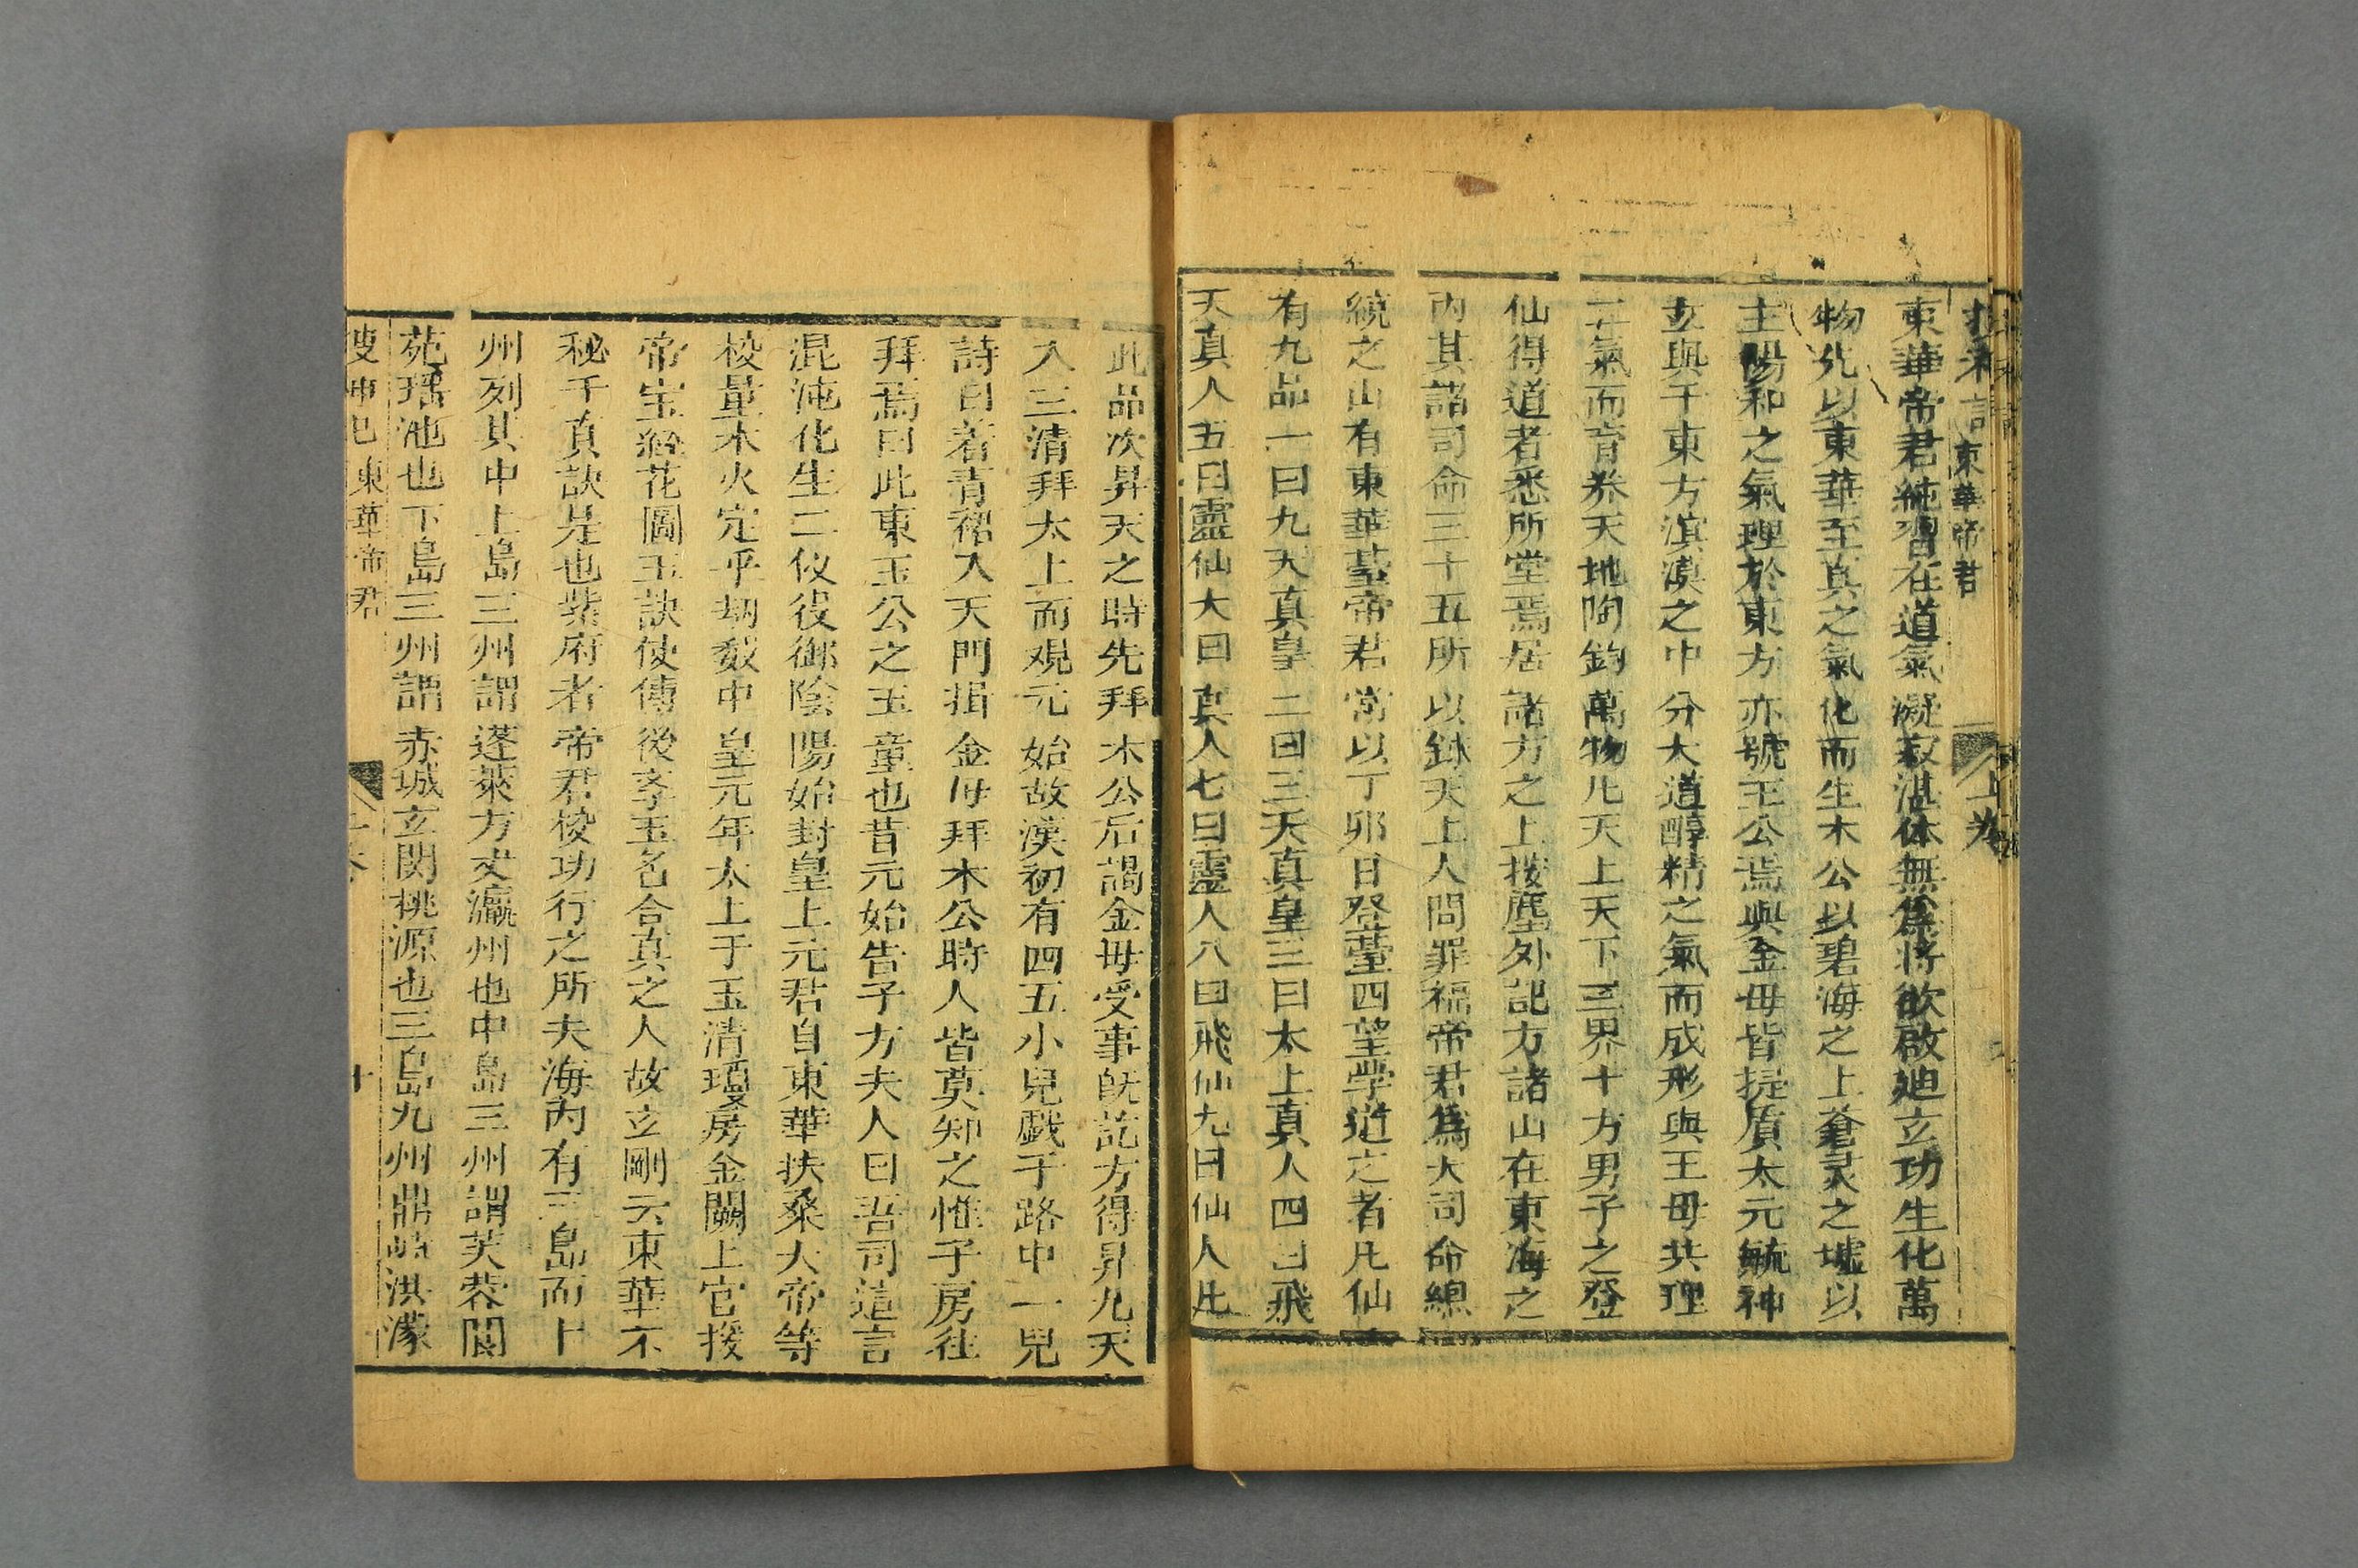 東華帝君
上卷
東華帝君純得在道氣凝寂湛体無為將欲啟廸玄功生化萬
物先以東華至真之氣化而生木公以碧海之上蒼灵之墟以
主陽和之氣理於東方亦號王公焉與金母皆挺質太元毓神
玄與于東方溟漠之中分大道醇精之氣而成形與王母共理
二氣而育养天地陶鈞萬物凡天上天下三界十方男子之登
仙得道者悉所堂焉居諸方之上按塵外記方諸山在東海之
内其諸司命三十五所以錄天上人間罪福帝君為大司命總
統之山有東華臺帝君常以丁卯日登臺四望學道之者凡仙
有九品一曰九天真皇二曰三天真皇三曰太上真人四曰飛
天真人五曰靈仙六曰真人七曰靈人八曰飛仙九曰仙人凡
此品次昇天之時先拜木公后謁金母受事旣訖方得昇九天
入三清拜太上而覌元始故漢初有四五小兒戯于路中一兒
詩曰着青裙入天門揖金母拜木公時人皆莫知之惟子房往
拜焉曰此東玉公之玉童也昔元始告子方夫人曰吾司這言
混沌化生二仪役御陰陽始封皇上元君自東華扶桑大帝等
校量水火定乎刼数中皇元年太上于玉清瓊房金闕上宫授
帝宝經花圖玉訣使傳後李玉名合真之人故玄剛云東華不
秘千真訣是也紫府者帝君校功行之所夫海内有三島而十
州列其中上島三州謂蓬萊方丈瀛州也中島三州謂芙蓉閬
苑瑤池也下島三州謂赤城玄関桃源也三島九州鼎峙洪濛
搜神巳東華帝君
十